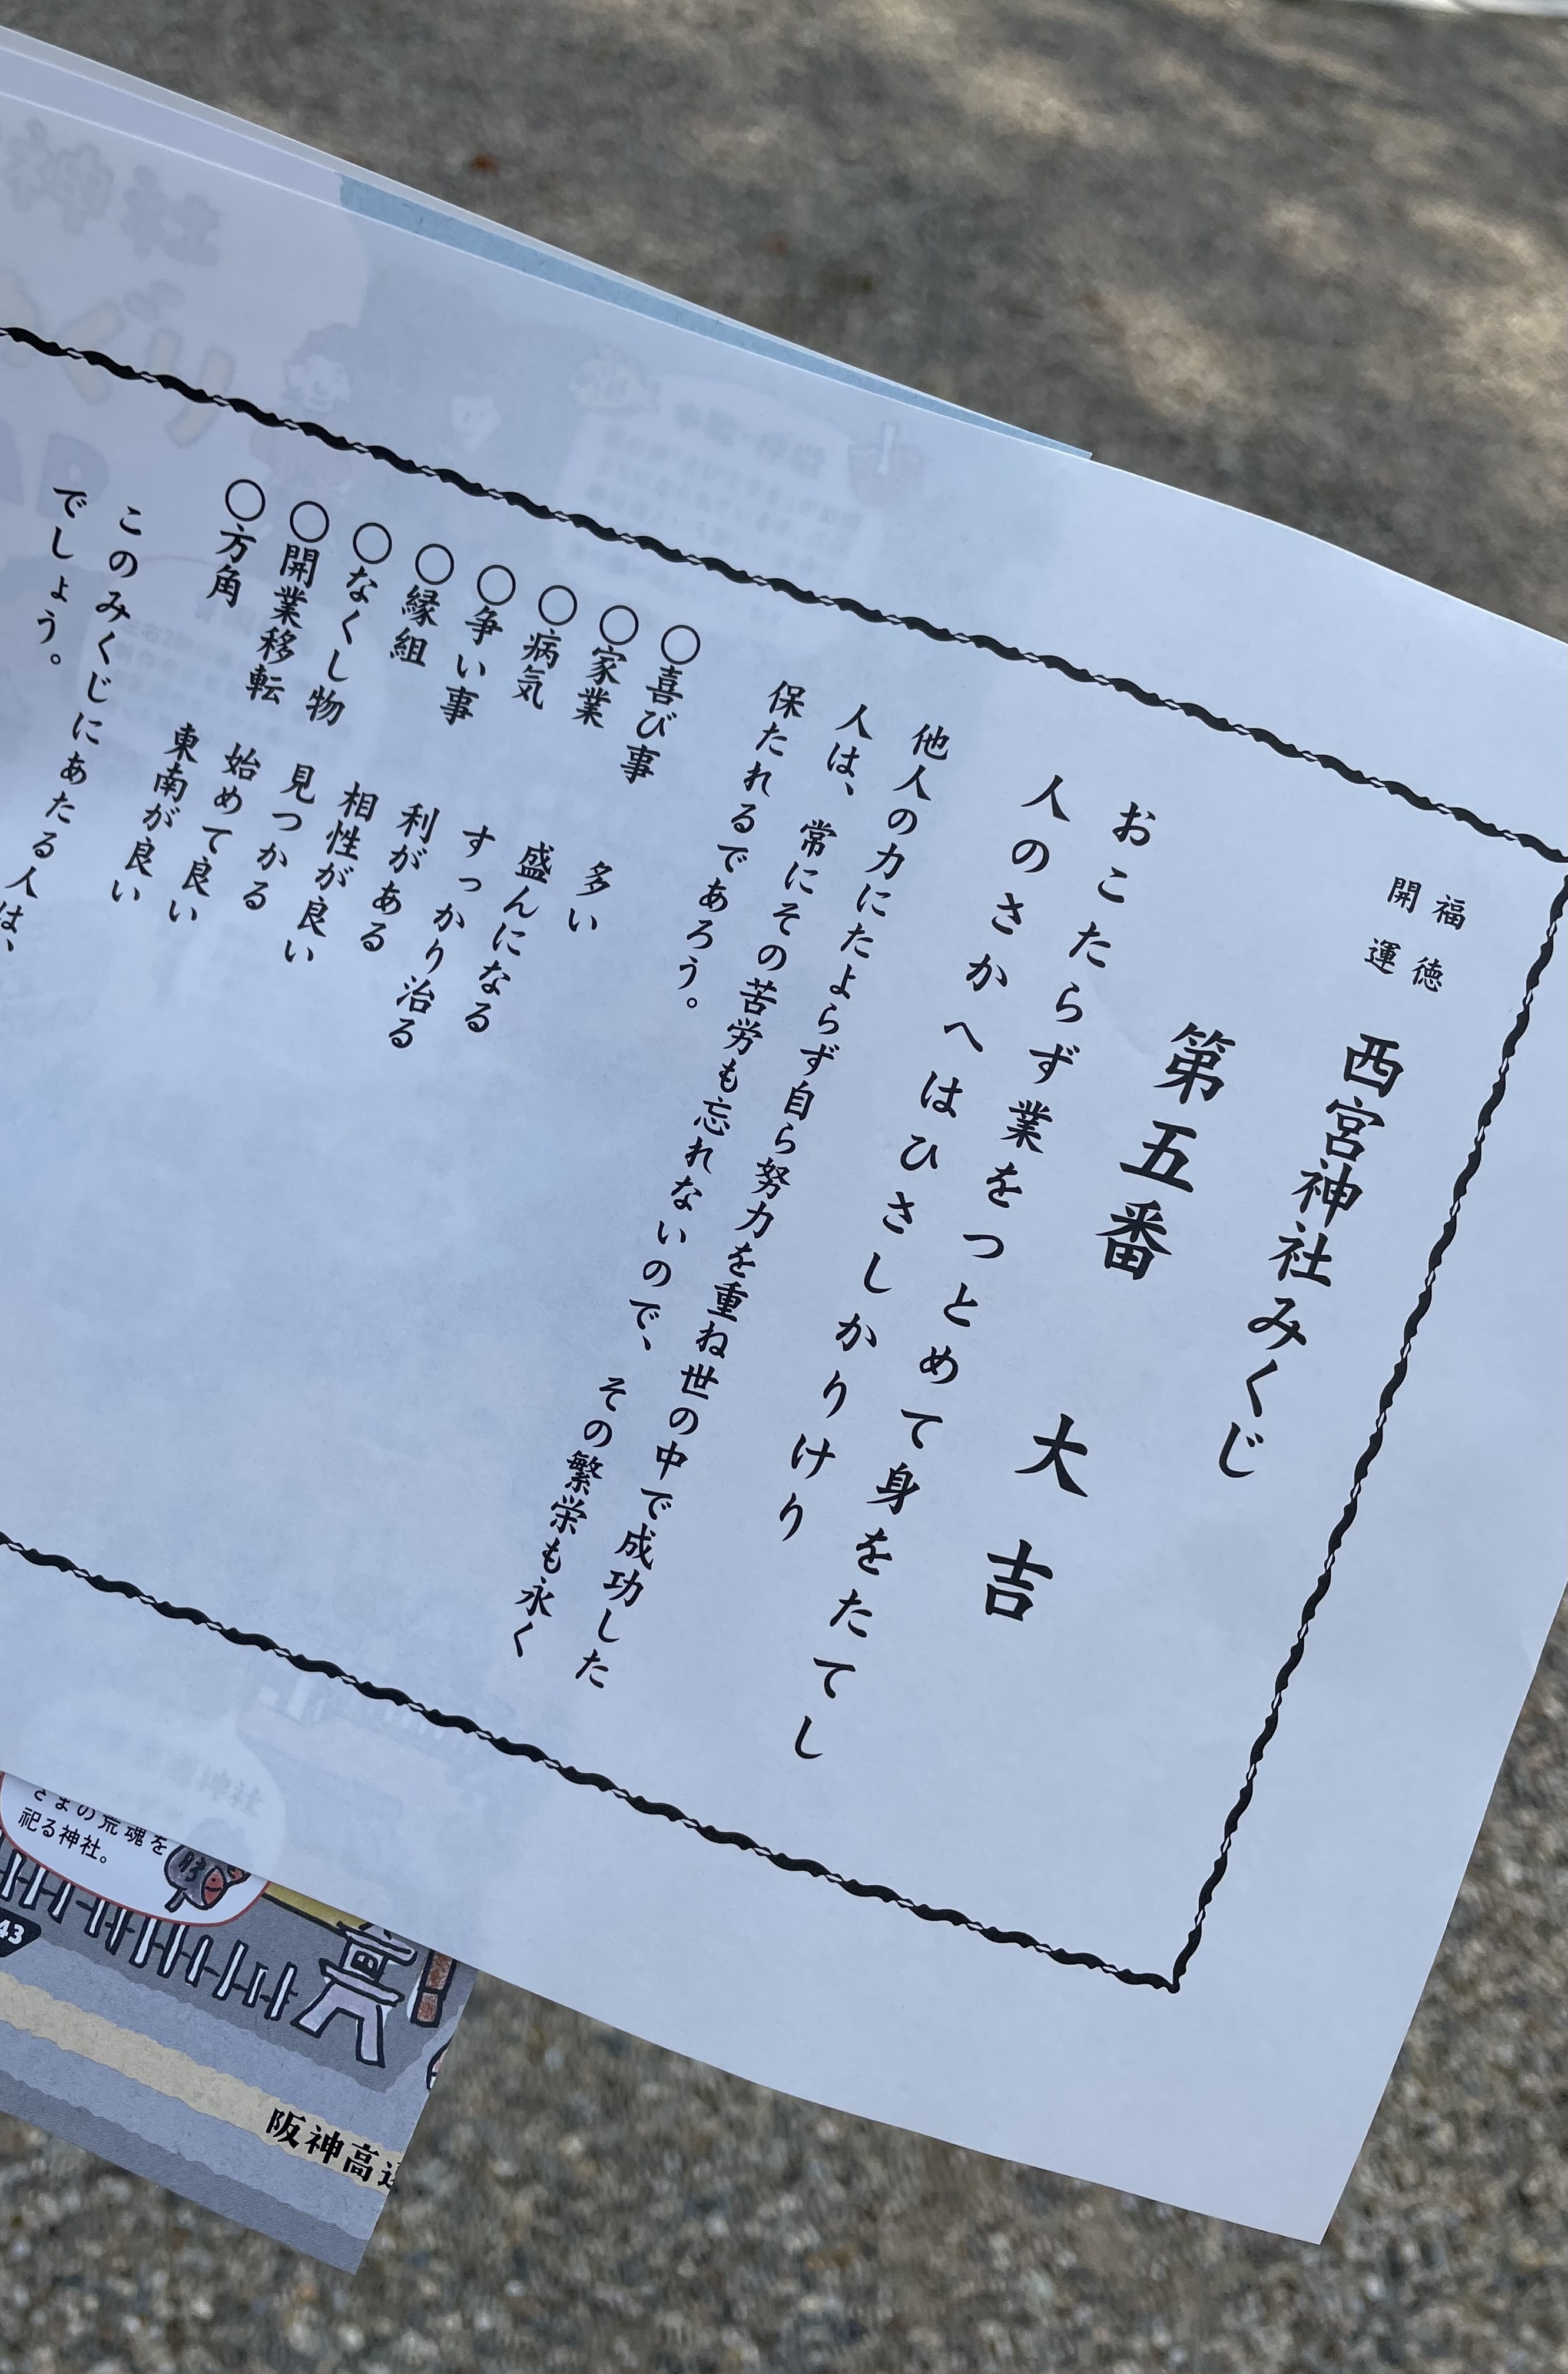 福徳
開運
西宮神社みくじ
第五番 大吉
おこたらず業をつとめて身をたてし
人のさかへはひさしかりけり
他人の力にたよらず自ら努力を重ね世の中で成功した
人は、常にその苦労も忘れないので、その繁栄も永く
保たれるであろう。
○喜び事 多い
○家業 盛んになる
○病気 すっかり治る
○争い事 利がある
○縁組 相性が良い
○なくし物 見つかる
○開業移転 始めて良い
○方角 東南が良い
このみくじにあたる人は、
でしょう。
さまの荒魂を
祀る神社。
43
阪神高速